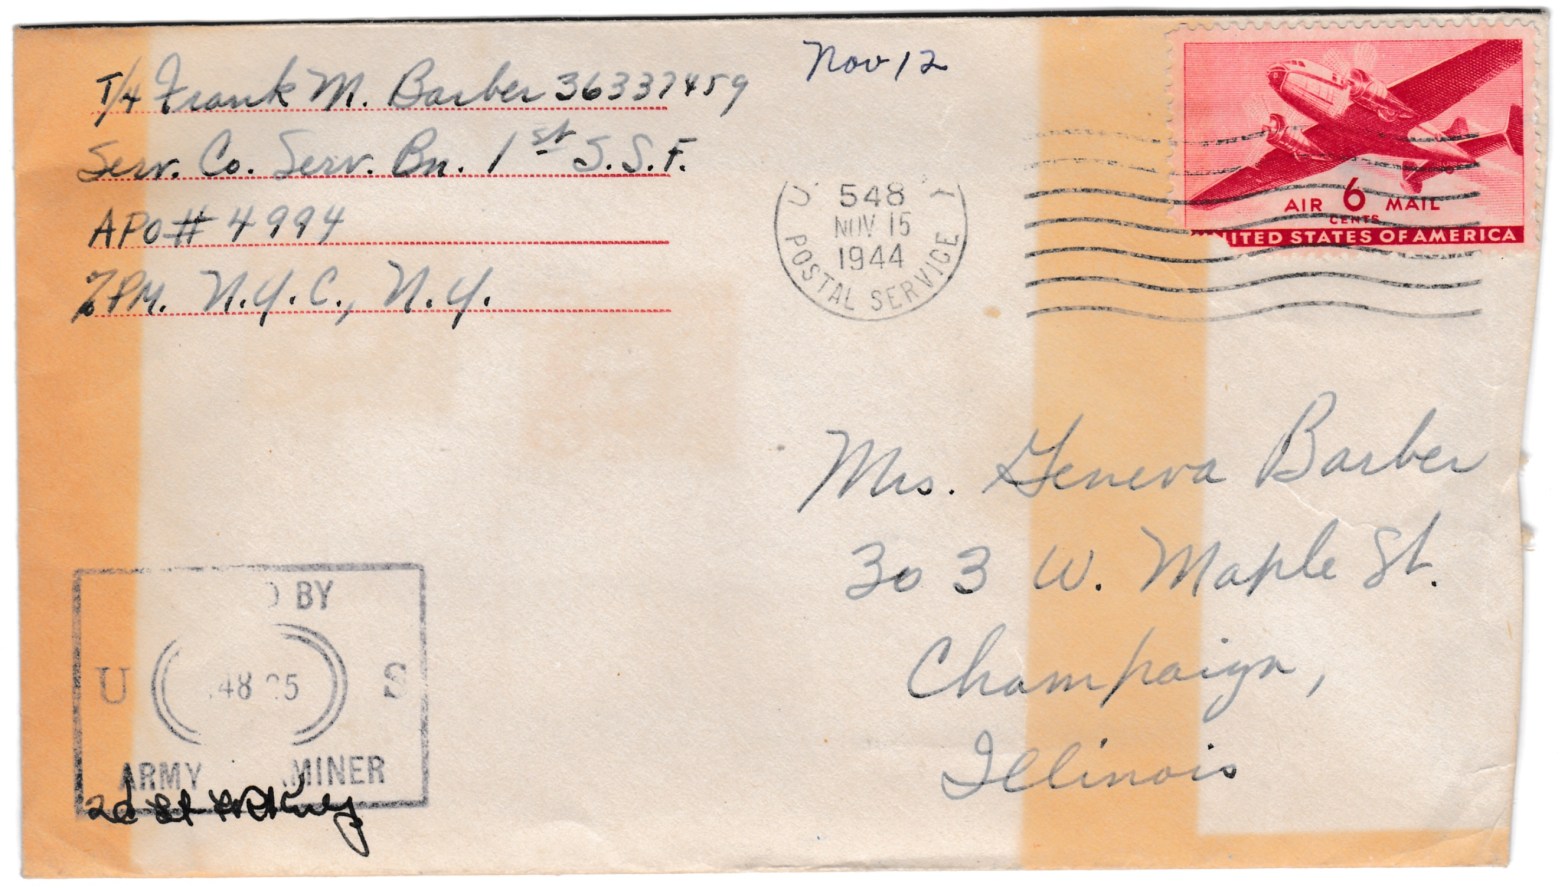 Nov 12
T/4 Frank M. Barber 36337459
Serv. Co. Serv. Bn. 1st S.S.F.
APO # 4994
℅ PM. N.Y.C., N.Y.
548
NOV 15
1944
POSTAL SERVICE
AIR 6 MAIL
CENTS
ITED STATES OF AMERICA
Mrs. Geneva Barber
303 W. Maple St.
Champaign,
Illinois
D BY
U S
ARMY MINER
2d Lt